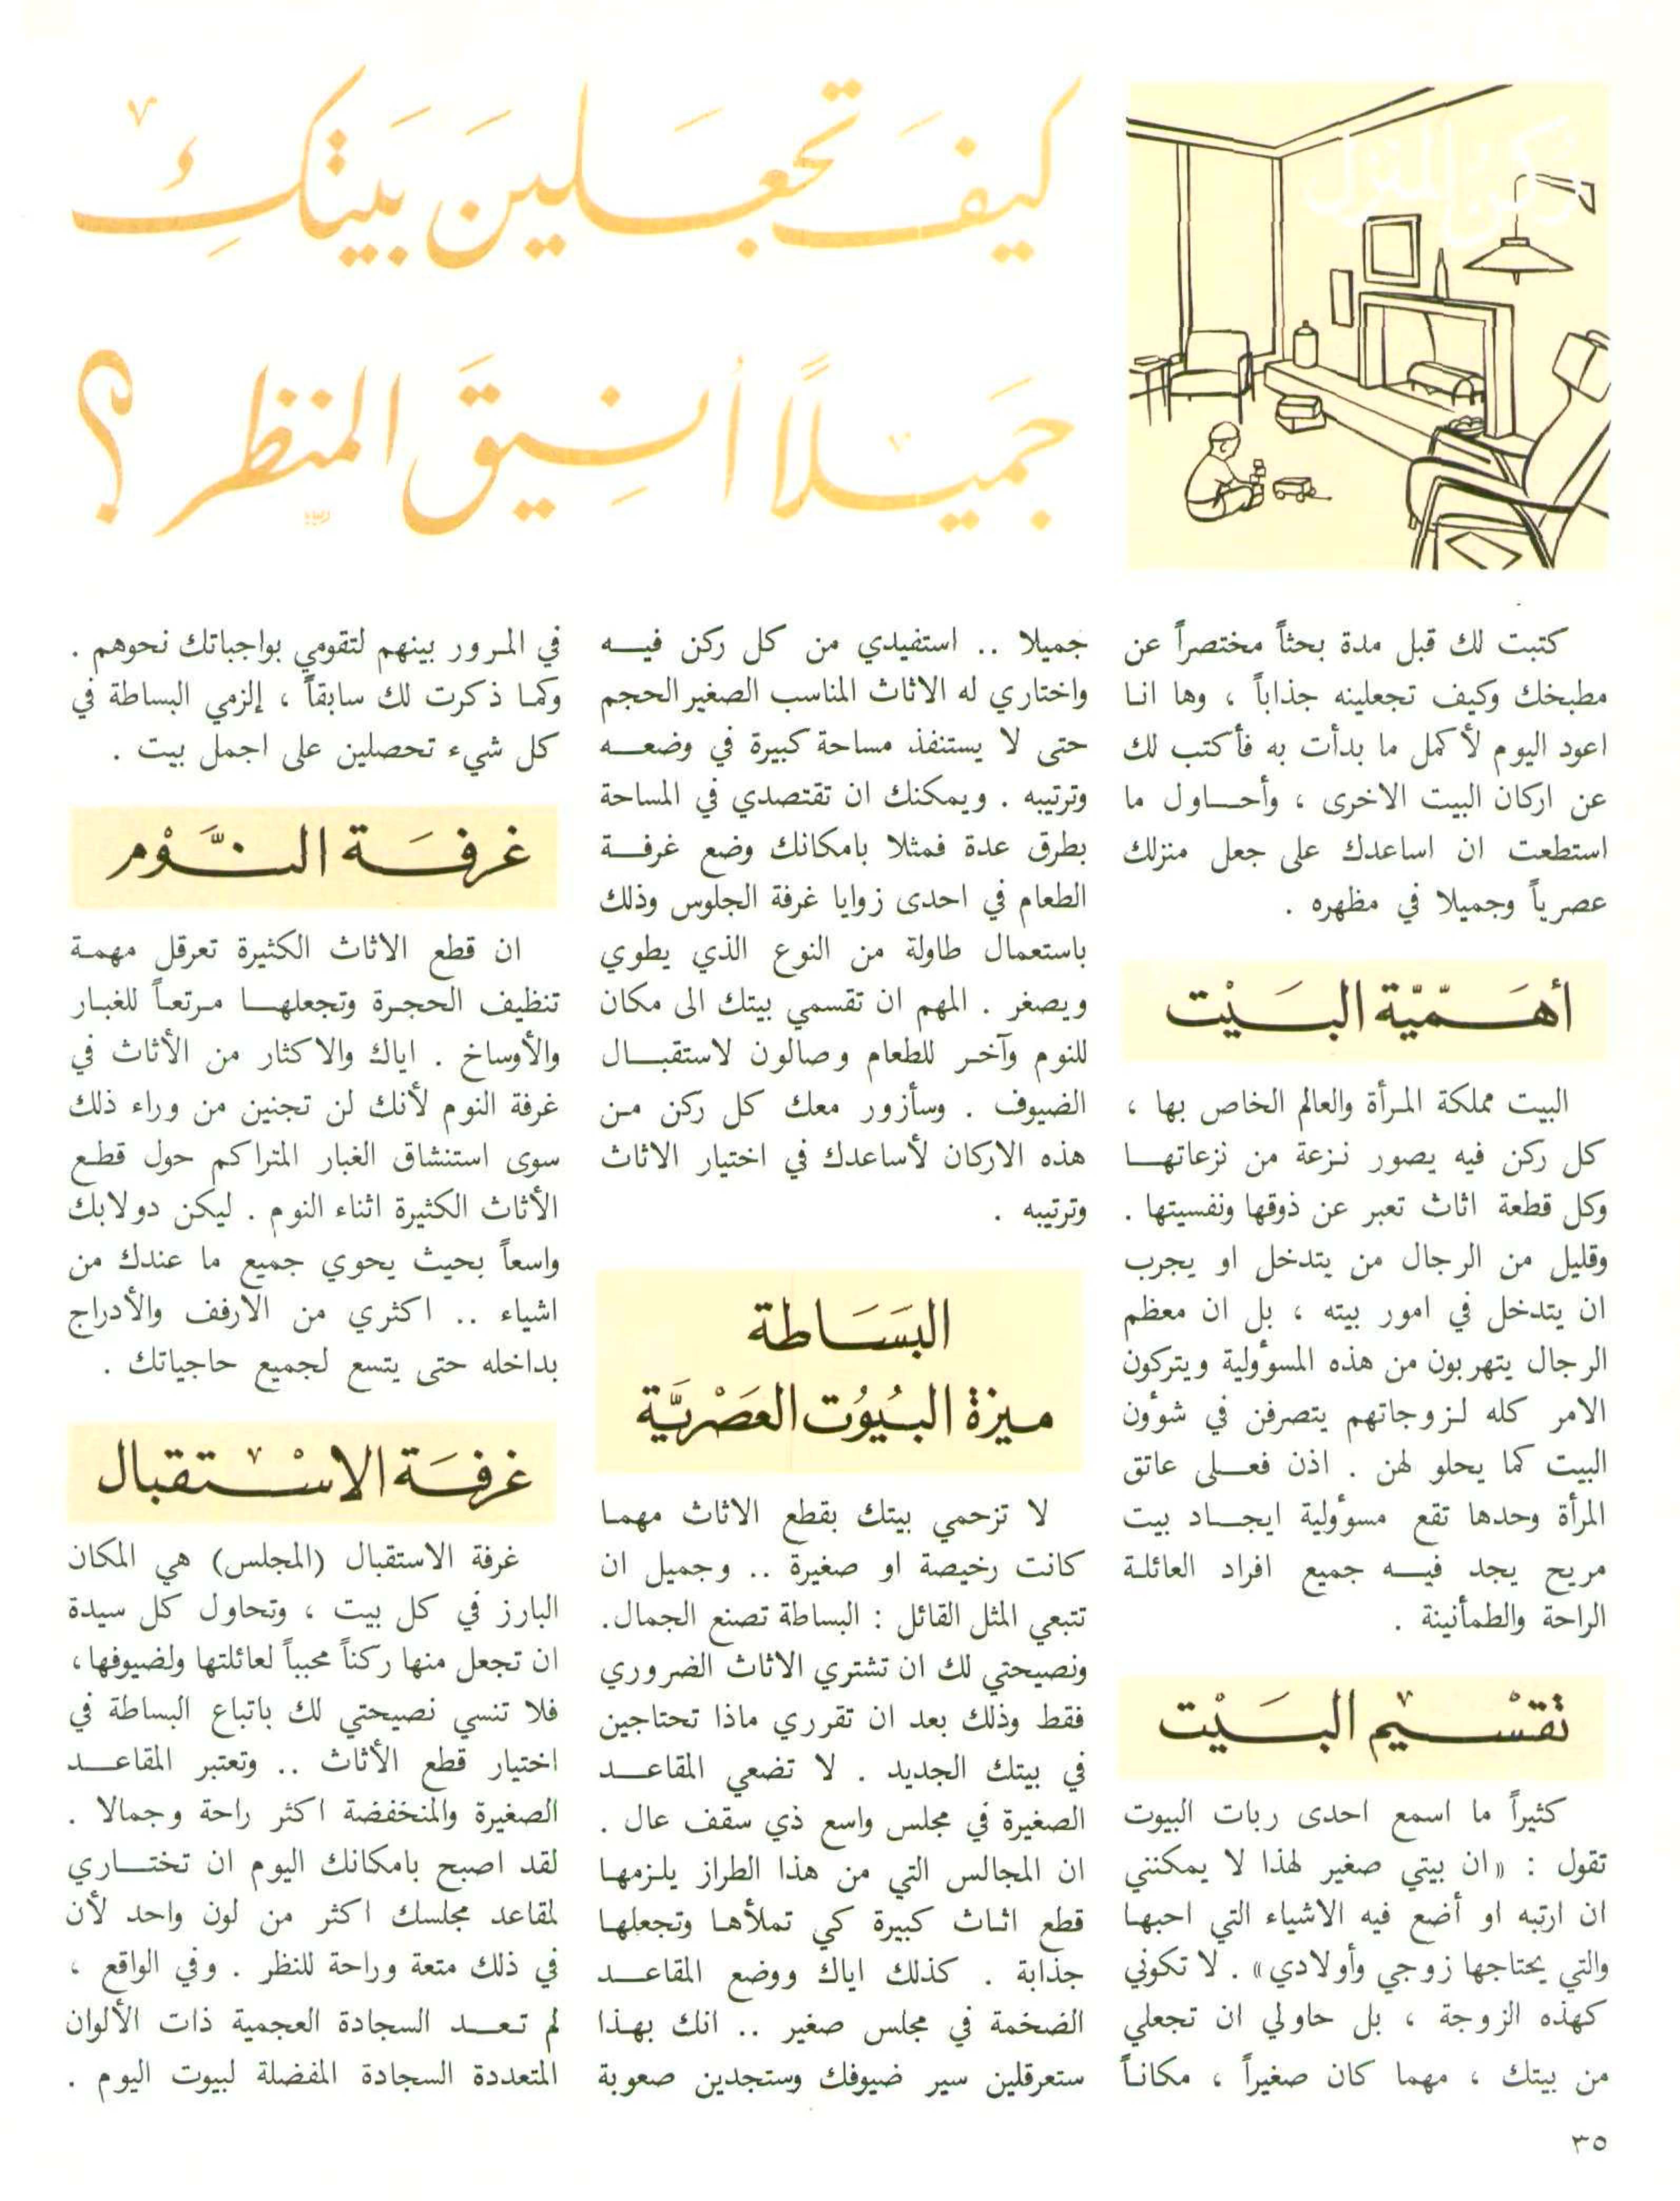 ركن المنزل
كيف تجعلين بيتك
جميلاً أنيق المنظر ؟
كتبت لك قبل مدة بحثاً مختصراً عن
مطبخك وكيف تجعلينه جذاباً ، وها انا
اعود اليوم لأكمل ما بدأت به فأكتب لك
عن اركان البيت الاخرى ، وأحاول ما
استطعت ان اساعدك على جعل منزلك
عصرياً وجميلا في مظهره .
أهمّيّة البيْت
البيت مملكة المرأة والعالم الخاص بها ،
كل ركن فيه يصور نزعة من نزعاتها
وكل قطعة اثاث تعبر عن ذوقها ونفسيتها .
وقليل من الرجال من يتدخل او يجرب
ان يتدخل في امور بيته ، بل ان معظم
الرجال يتهربون من هذه المسؤولية ويتركون
الامر كله لزوجاتهم يتصرفن في شؤون
البيت كما يحلو لهن . اذن فعلى عاتق
المرأة وحدها تقع مسؤولية ايجاد بيت
مريح يجد فيه جميع افراد العائلة
الراحة والطمأنينة .
تقسْيم البيْت
كثيراً ما اسمع احدى ربات البيوت
تقول : «ان بيتي صغير لهذا لا يمكنني
ان ارتبه او أضع فيه الاشياء التي احبها
والتي يحتاجها زوجي وأولادي» . لا تكوني
كهذه الزوجة ، بل حاولي ان تجعلي
من بيتك ، مهما كان صغيراً ، مكاناً
جميلا .. استفيدي من كل ركن فيه
واختاري له الاثاث المناسب الصغير الحجم
حتى لا يستنفذ مساحة كبيرة في وضعه
وترتيبه . ويمكنك ان تقتصدي في المساحة
بطرق عدة فمثلا بامكانك وضع غرفة
الطعام في احدى زوايا غرفة الجلوس وذلك
باستعمال طاولة من النوع الذي يطوي
ويصغر . المهم ان تقسمي بيتك الى مكان
للنوم وآخر للطعام وصالون لاستقبال
الضيوف . وسأزور معك كل ركن من
هذه الاركان لأساعدك في اختيار الاثاث
وترتيبه .
البسَاطة
ميزة البيُوُت العَصْريَّة
لا تزحمي بيتك بقطع الاثاث مهما
كانت رخيصة او صغيرة .. وجميل ان
تتبعي المثل القائل : البساطة تصنع الجمال.
ونصيحتي لك ان تشتري الاثاث الضروري
فقط وذلك بعد ان تقرري ماذا تحتاجين
في بيتك الجديد . لا تضعي المقاعد
الصغيرة في مجلس واسع ذي سقف عال .
ان المجالس التي من هذا الطراز يلزمها
قطع اثاث كبيرة كي تملأها وتجعلها
جذابة . كذلك اياك ووضع المقاعد
الضخمة في مجلس صغير .. انك بهذا
ستعرقلين سير ضيوفك وستجدين صعوبة
في المرور بينهم لتقومي بواجباتك نحوهم .
وكما ذكرت لك سابقاً ، إلزمي البساطة في
كل شيء تحصلين على اجمل بيت .
غرفَة النَّوْم
ان قطع الاثاث الكثيرة تعرقل مهمة
تنظيف الحجرة وتجعلها مرتعاً للغبار
والأوساخ . اياك والاكثار من الأثاث في
غرفة النوم لأنك لن تجنين من وراء ذلك
سوى استنشاق الغبار المتراكم حول قطع
الأثاث الكثيرة اثناء النوم . ليكن دولابك
واسعاً بحيث يحوي جميع ما عندك من
اشياء .. اكثري من الارفف والأدراج
بداخله حتى يتسع لجميع حاجياتك .
غرفَة الاسْتقبال
غرفة الاستقبال (المجلس) هي المكان
البارز في كل بيت ، وتحاول كل سيدة
ان تجعل منها ركناً محبباً لعائلتها ولضيوفها،
فلا تنسي نصيحتي لك باتباع البساطة في
اختيار قطع الأثاث .. وتعتبر المقاعد
الصغيرة والمنخفضة اكثر راحة وجمالا .
لقد اصبح بامكانك اليوم ان تختاري
لمقاعد مجلسك اكثر من لون واحد لأن
في ذلك متعة وراحة للنظر . وفي الواقع ،
لم تعد السجادة العجمية ذات الألوان
المتعددة السجادة المفضلة لبيوت اليوم .
٣٥